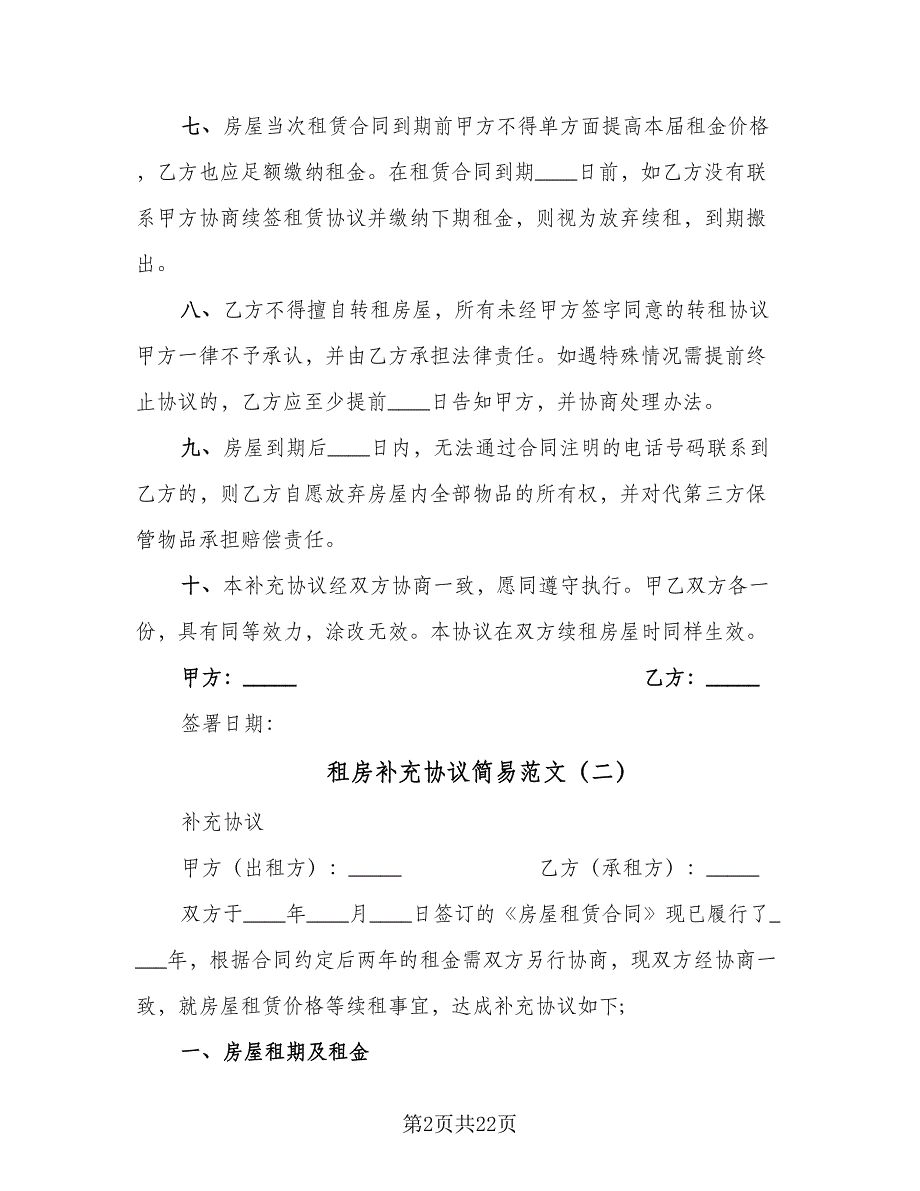 七、房屋当次租赁合同到期前甲方不得单方面提高本届租金价格
，乙方也应足额缴纳租金。在租赁合同到期____日前，如乙方没有联
系甲方协商续签租赁协议并缴纳下期租金，则视为放弃续租，到期搬
出。
八、乙方不得擅自转租房屋，所有未经甲方签字同意的转租协议
甲方一律不予承认，并由乙方承担法律责任。如遇特殊情况需提前终
止协议的，乙方应至少提前____日告知甲方，并协商处理办法。
九、房屋到期后____日内，无法通过合同注明的电话号码联系到
乙方的，则乙方自愿放弃房屋内全部物品的所有权，并对代第三方保
管物品承担赔偿责任。
十、本补充协议经双方协商一致，愿同遵守执行。甲乙双方各一
份，具有同等效力，涂改无效。本协议在双方续租房屋时同样生效。
甲方：_____ 乙方：_____
签署日期：
租房补充协议简易范文（二）
补充协议
甲方（出租方）：_____ 乙方（承租方）：_____
双方于____年____月____日签订的《房屋租赁合同》现已履行了_
___年，根据合同约定后两年的租金需双方另行协商，现双方经协商一
致，就房屋租赁价格等续租事宜，达成补充协议如下;
一、房屋租期及租金
第2页共22页